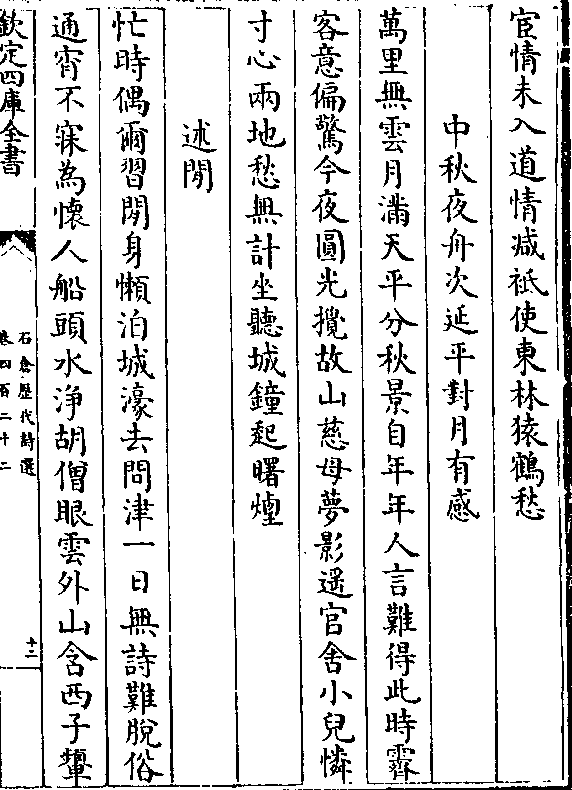 宦情未入道情减祗使東林猿鶴愁
中秋夜舟次延平對月有感
萬里無雲月滿天平分秋景自年年人言難得此時霽
客意偏驚今夜圓光攪故山慈母夢影遥官舍小兒憐
寸心兩地愁無計坐聽城鐘起曙煙
述閒
忙時偶爾習閒身懶泊城濠去問津一日無詩難脫俗
通宵不寐為懷人船頭水净胡僧眼雲外山含西子顰
欽定四庫全書
石倉歴代詩選
卷四百二十二
十二